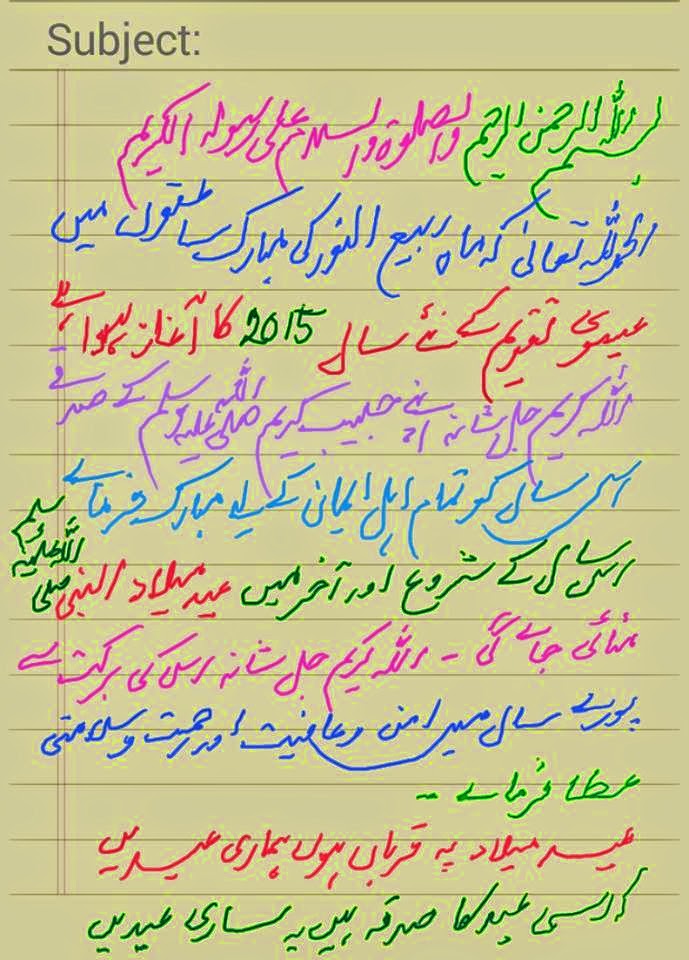 Subject:
بسم اللہ الرحمن الرحیم والصلوۃ والسلام علی رسولہ الکریم
الحمدللہ تعالیٰ کہ ماہ ربیع النور کی مبارک ساعتوں میں
عیسوی تقویم کے نئے سال 2015 کا آغاز ہوا ہے
اللہ کریم جل شانہ اپنے حبیب کریم صلی اللہ علیہ وسلم کے صدقے
اس سال کو تمام اہل ایمان کے لیے مبارک فرمائے
اس سال کے شروع اور آخر میں عید میلاد النبی صلی اللہ علیہ وسلم
منائی جائے گی - اللہ کریم جل شانہ اس کی برکت سے
پورے سال میں امن و عافیت اور رحمت و سلامتی
عطا فرمائے --
عید میلاد پہ قرباں ہوں ہماری عیدیں
کہ اسی عید کا صدقہ ہیں یہ ساری عیدیں